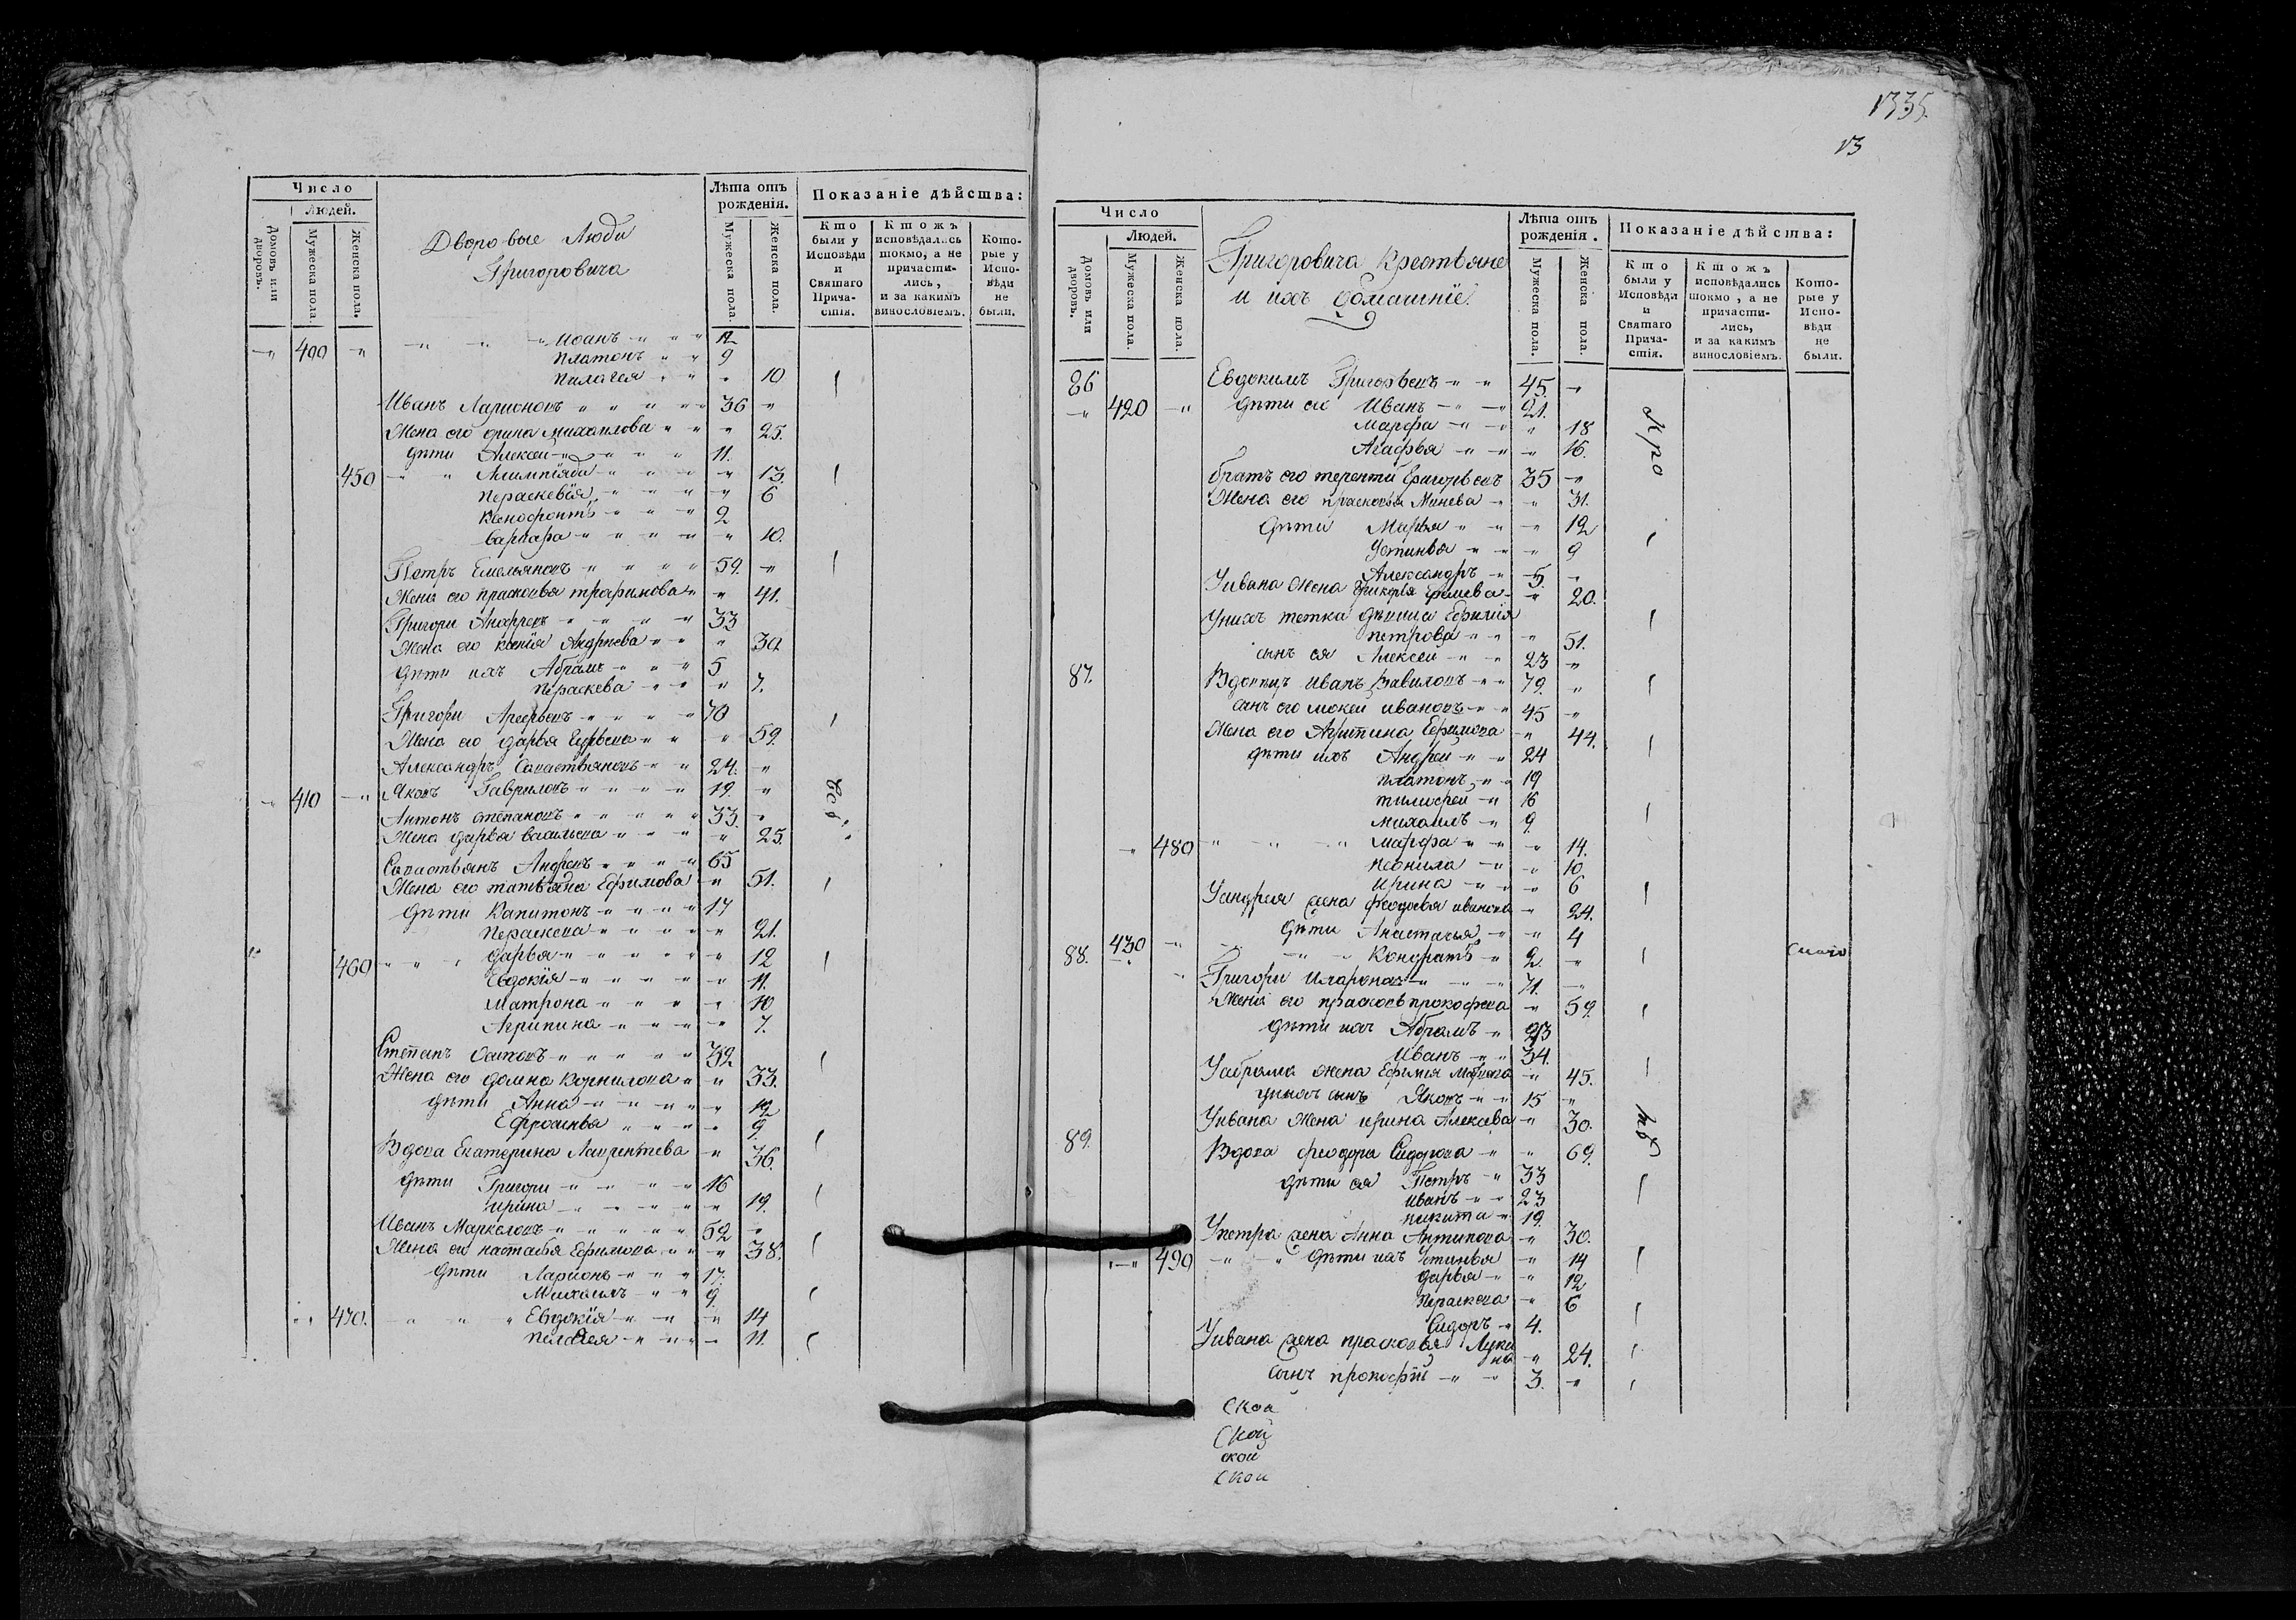 Число
Людей.
Домовъ или дворовъ.
Мужеска пола.
Женска пола.
Дворовые Люди
Григоровича
Лѣта отъ рожденія.
Мужеска пола.
Женска пола.
Показаніе дѣйства:
Кто были у Исповѣди и Святаго Причастія.
Ктожъ исповѣдались токмо, а не причастились, и за какимъ винословіемъ.
Которые у Исповѣди не были.
400 Иоанъ 12
Платонъ 9
Пилагея 10
Иванъ Ларионовъ 36
Жена его орина михаилова 25.
дѣти Алексеи 11.
450 Алимпїяда 13.
Пераскевїя 6
Ксенофонтъ 2
варвара 10.
Петръ Емельяновъ 59.
Жена его прасковья трафимова 41.
Григори Андреевъ 33
Жена его ксенїя Андреева 30
дѣти ихъ Абрамъ 5
Пераскева 7.
Григори Арефьевъ 70
Жена его дарья 59.
Александръ Савастьяновъ 24.
410 Яковъ Гавриловъ 19.
Антонъ степановъ 33.
Жена дарья васильева 25.
Савастьянъ Андреевъ 65
Жена его татьяна Ефимова 51.
дѣти Капитонъ 17
Пераскева 21.
460 дарья 12
Евдокїя 11.
Матрона 10
Агрипина 7.
Степанъ Осиповъ 39
Жена его домна Корнилова 33.
дѣти Анна 12
Ефросинья 9.
Вдова Екатерина Лаврентьева 36.
дѣти Григори 16
ирина 19.
Иванъ Маркеловъ 52
Жена его настасья Ефимова 38.
дѣти Ларионъ 17.
Михаилъ 9.
470. Евдокїя 14
Пелагея 11.
1335.
13
Число
Людей.
Домовъ или дворовъ.
Мужеска пола.
Женска пола.
Григоровича Крестьяне
и ихъ домашнїе.
Лѣта отъ рожденія.
Мужеска пола.
Женска пола.
Показаніе дѣйства:
Кто были у Исповѣди и Святаго Причастія.
Ктожъ исповѣдались токмо, а не причастились, и за какимъ винословіемъ.
Которые у Исповѣди не были.
86 Евдокимъ Григорьевъ 45.
420 дѣти его Иванъ 21.
Марфа 18
Агафья 16.
братъ его терентий Григорьевъ 35
Жена его прасковья Минева 31.
дѣти Марья 12
Устинья 9
Александръ 5.
Уивана Жена 20.
Унихъ тетка Ефимїя
петрова 51.
сынъ ея Алексеи 23
87. Вдовецъ иванъ Вавиловъ 79.
сынъ его мокеи ивановъ 45
Жена его Агрипина Ефимова 44.
дѣти ихъ Андреи 24
платонъ 19
тимофеи 16
михаилъ 9.
480 Марфа 14.
Неонила 10.
Ирина 6
Уандрея жена феодосья иванова 24.
дѣти Анастасья 4
88. 430 Кондратъ 2
Григори Иларионовъ 71.
Жена его прасковья прокофьева 59.
дѣти ихъ Абрамъ
Иванъ 34.
Уабрама Жена Ефимия 45.
унихъ сынъ Яковъ 15
Уивана Жена ирина Алексева 30.
89. Вдова феодора Сидорова 69.
дѣти ея Петръ 33
иванъ 23
никита 19.
Упетра жена Анна Антипова 30.
490 дѣти ихъ Устинья 14
дарья 12
Пераскева 6
Сидоръ 4.
Уивана жена прасковья Луки
на 24.
сынъ прокофїй 3.
Скоа
Скои
скои
Скои